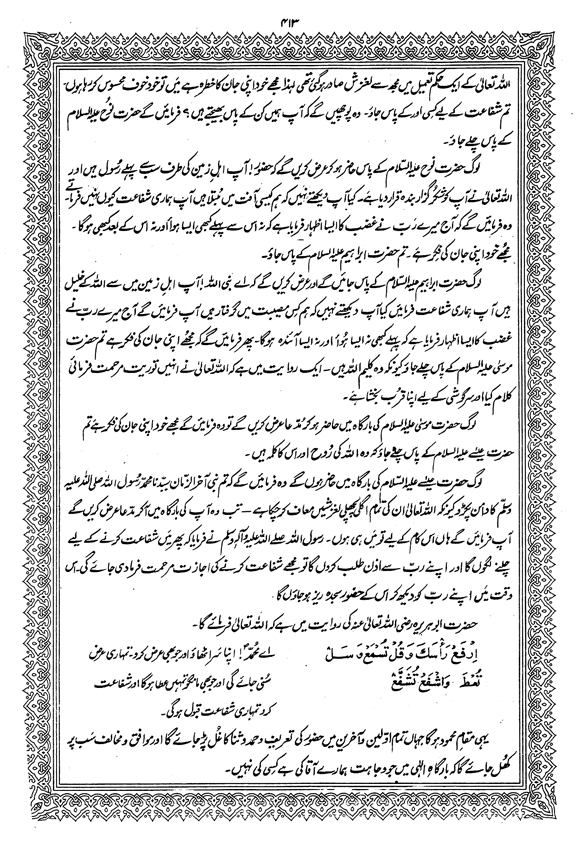 ۴۱۳
اللہ تعالیٰ کے ایک حکم کی تعمیل میں مجھ سے لغزش صادر ہو گئی تھی لہٰذا مجھے خود اپنی جان کا خطرہ ہے میں تو خود خوف محسوس کر رہا ہوں۔
تم شفاعت کے لیے کسی اور کے پاس جاؤ۔ وہ پوچھیں گے کہ آپ ہمیں کن کے پاس بھیجتے ہیں؟ فرمائیں گے حضرت نوح علیہ السلام
کے پاس چلے جاؤ۔
لوگ حضرت نوح علیہ السلام کے پاس حاضر ہو کر عرض کریں گے کہ حضور! آپ اہلِ زمین کی طرف سب سے پہلے رسول ہیں اور
اللہ تعالیٰ نے آپ کو شکر گزار بندہ قرار دیا ہے۔ کیا آپ دیکھتے نہیں کہ ہم کیسی آفت میں مبتلا ہیں آپ ہماری شفاعت کیوں نہیں فرماتے
وہ فرمائیں گے کہ آج میرے رب نے غضب کا ایسا اظہار فرمایا ہے کہ نہ اس سے پہلے کبھی ایسا ہوا اور نہ اس کے بعد کبھی ہوگا۔
مجھے خود اپنی جان کی فکر ہے۔ تم حضرت ابراہیم علیہ السلام کے پاس جاؤ۔
لوگ حضرت ابراہیم علیہ السلام کے پاس جائیں گے اور عرض کریں گے کہ اے نبی اللہ! آپ اہلِ زمین میں سے اللہ کے خلیل
ہیں آپ ہماری شفاعت فرمائیں کیا آپ دیکھتے نہیں کہ ہم کس مصیبت میں گرفتار ہیں آپ فرمائیں گے آج میرے رب نے
غضب کا ایسا اظہار فرمایا ہے کہ پہلے کبھی نہ ایسا ہُوا اور نہ ایسا آئندہ ہوگا۔ پھر فرمائیں گے کہ مجھے اپنی جان کی فکر ہے تم حضرت
موسیٰ علیہ السلام کے پاس چلے جاؤ کیونکہ وہ کلیم اللہ ہیں۔ ایک روایت میں ہے کہ اللہ تعالیٰ نے انہیں توریت مرحمت فرمائی
کلام کیا اور سرگوشی کے لیے اپنا قرب بخشا ہے۔
لوگ حضرت موسیٰ علیہ السلام کی بارگاہ میں حاضر ہو کر مدّعا عرض کریں گے تو وہ فرمائیں گے مجھے خود اپنی جان کی فکر ہے تم
حضرت عیسےٰ علیہ السلام کے پاس چلے جاؤ کہ وہ اللہ کی رُوح اور اس کا کلمہ ہیں۔
لوگ حضرت عیسےٰ علیہ السلام کی بارگاہ میں حاضر ہوں گے وہ فرمائیں گے کہ تم نبی آخر الزّماں سیّدنا محمد رسول اللہ صلی اللہ علیہ
وسلم کا دامن پکڑو کیونکہ اللہ تعالیٰ ان کی تمام اگلی پچھلی لغزشیں معاف کر چکا ہے — تب وہ آپ کی بارگاہ میں آکر مدّعا عرض کریں گے
آپ فرمائیں گے ہاں اس کام کے لیے تو میں ہی ہوں۔ رسول اللہ صلے اللہ علیہ وآلہٖ وسلم نے فرمایا کہ پھر میں شفاعت کرنے کے لیے
چلنے لگوں گا اور اپنے رب سے اذن طلب کروں گا تو مجھے شفاعت کرنے کی اجازت مرحمت فرما دی جائے گی جس
وقت میں اپنے رب کو دیکھ کر اس کے حضور سجدہ ریز ہو جاؤں گا
حضرت ابوہریرہ رضی اللہ تعالیٰ عنہ کی روایت میں ہے کہ اللہ تعالیٰ فرمائے گا۔
اِرْفَعْ رَأْسَكَ وَقُلْ تُسْمَعْ وَسَلْ اے محمد! اپنا سر اٹھاؤ اور جو بھی عرض کرو، تمہاری عرض
تُعْطَ وَاشْفَعْ تُشَفَّعْ سُنی جائے گی اور جو بھی مانگو تمہیں عطا ہوگا اور شفاعت
کرو تمہاری شفاعت قبول ہو گی۔
یہی مقام محمود ہوگا جہاں تمام اوّلین و آخرین میں حضورؐ کی تعریف و حمد و ثنا کا غُل پڑ جائے گا اور موافق و مخالف سب پر
کھُل جائے گا کہ بارگاہِ الٰہی میں جو وجاہت ہمارے آقا کی ہے کسی کی نہیں۔